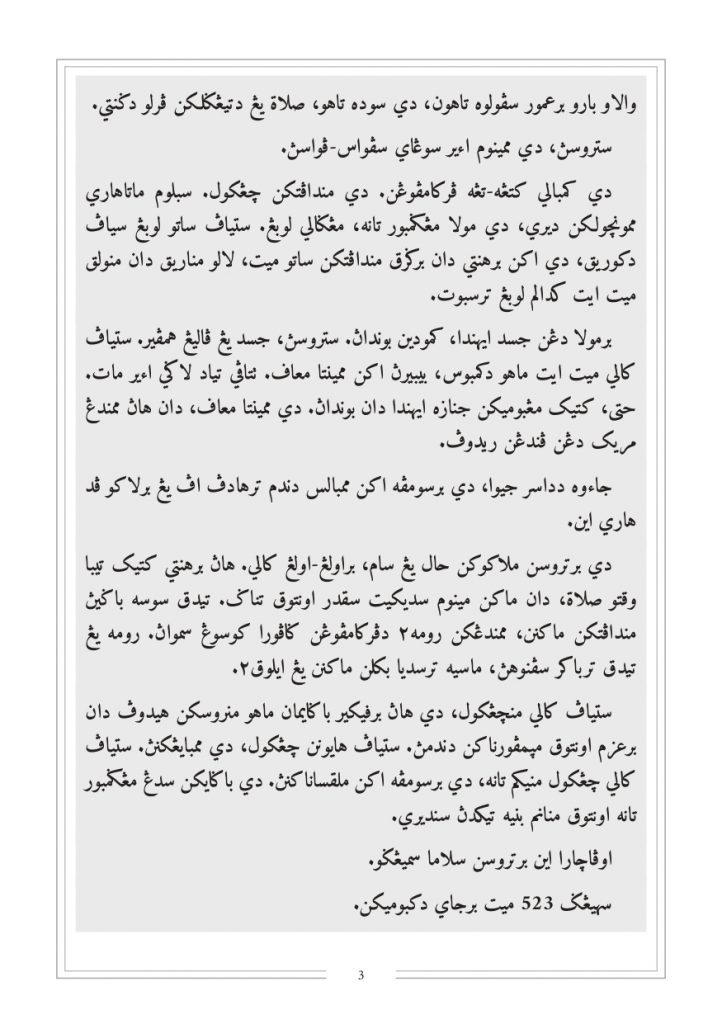 والاو بارو برعمور سڤولوه تاهون، دي سوده تاهو، صلاة يڠ دتيڠݢلکن ڤرلو دݢنتي.
ستروسڽ، دي ممينوم اءير سوڠاي سڤواس-ڤواسڽ.
دي کمبالي کتڠه-تڠه ڤرکامڤوڠن. دي منداڤتکن چڠکول. سبلوم ماتاهاري
مونچولکن ديري، دي مولا مڠݢمبور تانه، مڠݢالي لوبڠ. ستياڤ ساتو لوبڠ سياڤ
دکوريق، دي اکن برهنتي دان برݢرق منداڤتکن ساتو ميت، لالو مناريق دان منولق
ميت ايت کدالم لوبڠ ترسبوت.
برمولا دڠن جسد ايهندا، کمودين بونداڽ. ستروسڽ، جسد يڠ ڤاليڠ همڤير. ستياڤ
کالي ميت ايت ماهو دکمبوس، بيبيرڽ اکن ممينتا معاف. تتاڤي تياد لاݢي اءير مات.
حتى، کتيک مڠبوميکن جنازه ايهندا دان بونداڽ. دي ممينتا معاف، دان هاڽ ممندڠ
مريک دڠن ڤندڠن ريدوڤ.
جاءوه دداسر جيوا، دي برسومڤه اکن ممبالس دندم ترهادڤ اڤ يڠ برلاکو ڤد
هاري اين.
دي برتروسن ملاکوکن حال يڠ سام، براولڠ-اولڠ کالي. هاڽ برهنتي کتيک تيبا
وقتو صلاة، دان ماکن مينوم سديکيت سقدر اونتوق تناݢ. تيدق سوسه باݢيڽ
منداڤتکن ماکنن، ممندڠکن رومه٢ دڤرکامڤوڠن کاڤورا کوسوڠ سمواڽ. رومه يڠ
تيدق ترباکر سڤنوهڽ، ماسيه ترسديا بکلن ماکنن يڠ ايلوق٢.
ستياڤ کالي منچڠکول، دي هاڽ برفيکير باݢايمان ماهو منروسکن هيدوڤ دان
برعزم اونتوق مپمڤورناکن دندمڽ. ستياڤ هايونن چڠکول، دي ممبايڠکنڽ. ستياڤ
کالي چڠکول منيکم تانه، دي برسومڤه اکن ملقساناکنڽ. دي باݢايکن سدڠ مڠݢمبور
تانه اونتوق منانم بنيه تيکدڽ سنديري.
اوڤاچارا اين برتروسن سلاما سميڠݢو.
سهيڠݢ 523 ميت برجاي دکبوميکن.
3